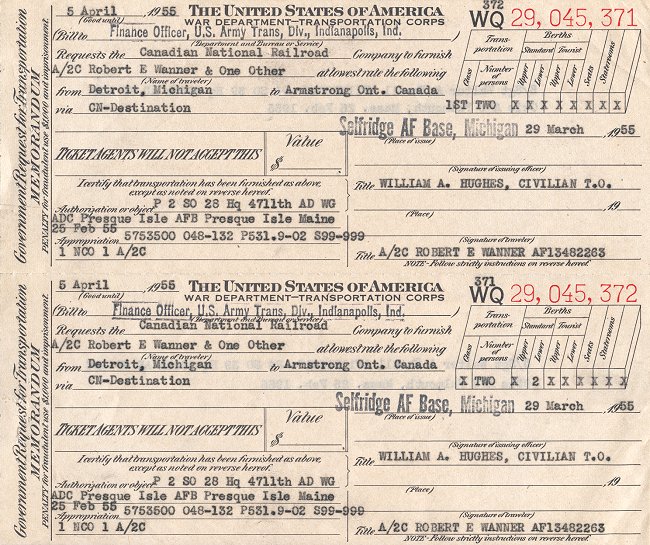 5 April, 1955 THE UNITED STATES OF AMERICA 372
(Good until) WAR DEPARTMENT—TRANSPORTATION CORPS WQ 29,045,371
(Bill to) Finance Officer, U.S. Army Trans, Div., Indianapolis, Ind.
(Department and Bureau or Service)
Requests the Canadian National Railroad Company to furnish
A/2C Robert E Wanner & One Other at lowest rate the following
(Name of traveler)
from Detroit, Michigan to Armstrong Ont. Canada
via CN-Destination
Trans- portation Berths
Standard Tourist
Class Number of persons Upper Lower Upper Lower Seats Staterooms
1ST TWO X X X X X X X X
Selfridge AF Base, Michigan 29 March, 1955
(Place of issue)
Value
$
TICKET AGENTS WILL NOT ACCEPT THIS
(Signature of issuing officer)
I certify that transportation has been furnished as above,
except as noted on reverse hereof.
Title WILLIAM A. HUGHES, CIVILIAN T.O.
Authorization or object P 2 SO 28 Hq 4711th AD WG
, 19
(Place)
ADC Presque Isle AFB Presque Isle Maine
25 Feb 55
Appropriation 5753500 048-132 P531.9-02 S99-999
(Signature of traveler)
1 NCO 1 A/2C
Title A/2C ROBERT E WANNER AF13482263
NOTE-Follow strictly instructions on reverse hereof.
Government Request for Transportation
MEMORANDUM
PENALTY for fraudulent use $1,000 and imprisonment
5 April, 1955 THE UNITED STATES OF AMERICA 371
(Good until) WAR DEPARTMENT—TRANSPORTATION CORPS WQ 29,045,372
(Bill to) Finance Officer, U.S. Army Trans, Div., Indianapolis, Ind.
(Department and Bureau or Service)
Requests the Canadian National Railroad Company to furnish
A/2C Robert E Wanner & One Other at lowest rate the following
(Name of traveler)
from Detroit, Michigan to Armstrong Ont. Canada
via CN-Destination
Trans- portation Berths
Standard Tourist
Class Number of persons Upper Lower Upper Lower Seats Staterooms
X TWO X 2 X X X X X X
Selfridge AF Base, Michigan 29 March, 1955
(Place of issue)
Value
$
TICKET AGENTS WILL NOT ACCEPT THIS
(Signature of issuing officer)
I certify that transportation has been furnished as above,
except as noted on reverse hereof.
Title WILLIAM A. HUGHES, CIVILIAN T.O.
Authorization or object P 2 SO 28 Hq 4711th AD WG
, 19
(Place)
ADC Presque Isle AFB Presque Isle Maine
25 Feb 55
Appropriation 5753500 048-132 P531.9-02 S99-999
(Signature of traveler)
1 NCO 1 A/2C
Title A/2C ROBERT E WANNER AF13482263
NOTE-Follow strictly instructions on reverse hereof.
Government Request for Transportation
MEMORANDUM
PENALTY for fraudulent use $1,000 and imprisonment